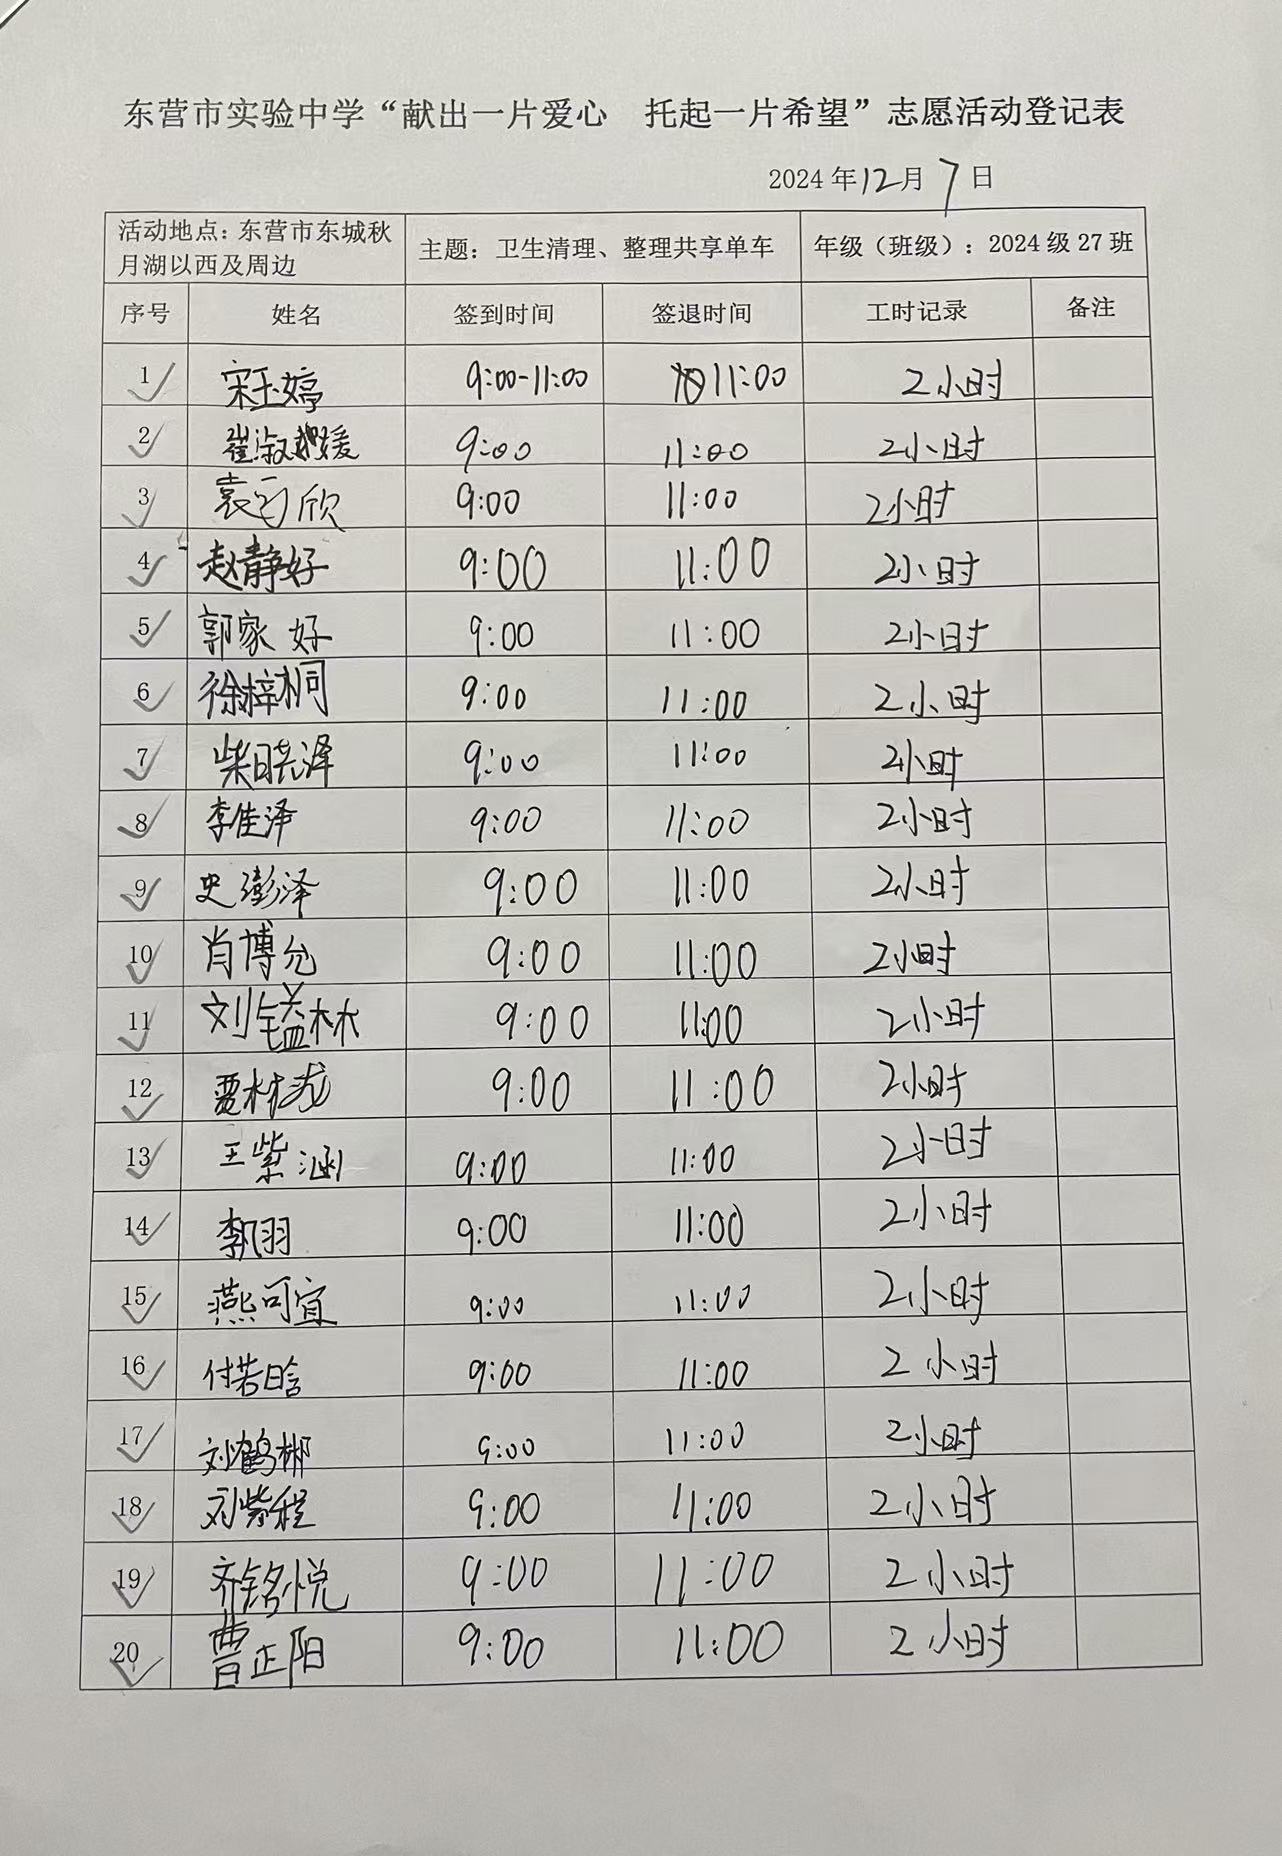 东营市实验中学“献出一片爱心 托起一片希望”志愿活动登记表
2024年12月7日
活动地点：东营市东城秋月湖以西及周边 主题：卫生清理、整理共享单车 年级（班级）：2024级27班
序号 姓名 签到时间 签退时间 工时记录 备注
1 宋玉婷 9:00-11:00 11:00 2小时
2 崔淑媛 9:00 11:00 2小时
3 袁 欣 9:00 11:00 2小时
4 赵静好 9:00 11:00 2小时
5 郭家好 9:00 11:00 2小时
6 徐梓桐 9:00 11:00 2小时
7 柴晓泽 9:00 11:00 2小时
8 李佳泽 9:00 11:00 2小时
9 史澎泽 9:00 11:00 2小时
10 肖博允 9:00 11:00 2小时
11 刘镒林 9:00 11:00 2小时
12 9:00 11:00 2小时
13 王紫涵 9:00 11:00 2小时
14 9:00 11:00 2小时
15 燕可宜 9:00 11:00 2小时
16 付若晗 9:00 11:00 2小时
17 刘鹤彬 9:00 11:00 2小时
18 刘紫程 9:00 11:00 2小时
19 齐铭悦 9:00 11:00 2小时
20 曹正阳 9:00 11:00 2小时